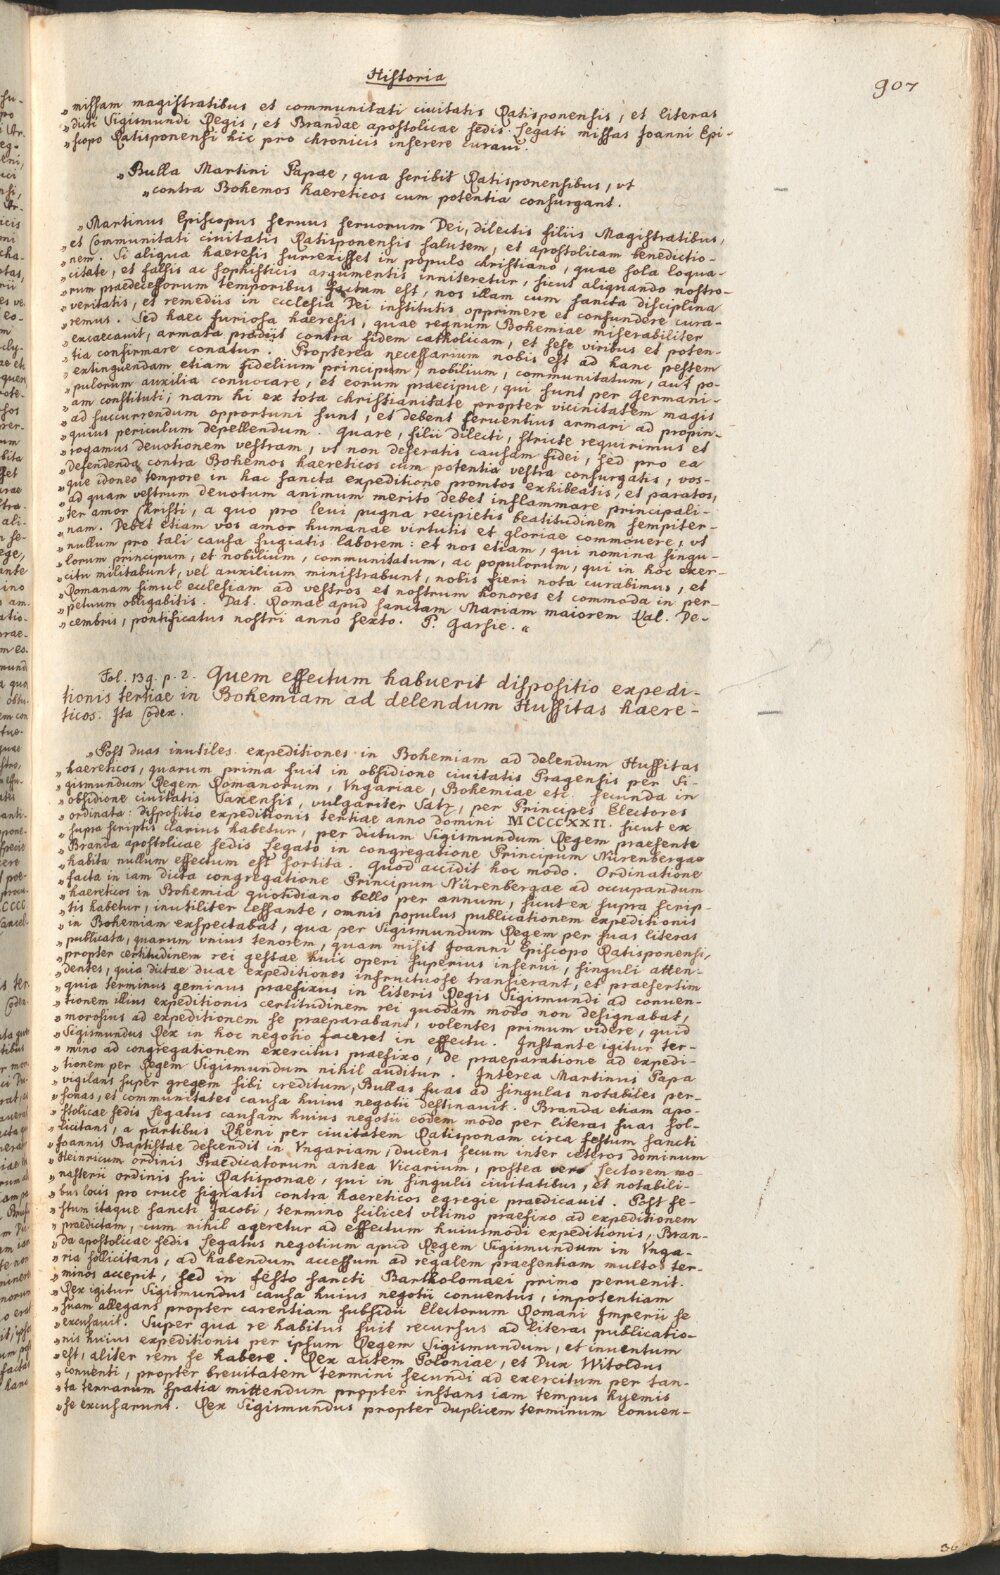 Historia
907
„missam magistratibus et communitati ciuitatis Ratisponensis, et literas
„dicti Sigismundi Regis, et Brandae apostolicae sedis legati missas Joanni Epi-
„scopo Ratisponensi hic pro chronicis inserere curaui.
„Bulla Martini Papae, qua scribit Ratisponensibus, vt
„contra Bohemos haereticos cum potentia consurgant.
„Martinus Episcopus seruus seruorum Dei, dilectis filiis Magistratibus,
„et Communitati ciuitatis Ratisponensis salutem, et apostolicam benedictio-
„nem. Si aliqua haeresis surrexisset in populo christiano, quae sola loqua-
„citate, et falsis ac sophisticis argumentis inniteretur, sicut aliquando nostro-
„rum praedecessorum temporibus factum est, nos illam cum sancta disciplina
„veritatis, et remediis in ecclesia Dei institutis opprimere et confundere cura-
„remus. Sed haec furiosa haeresis, quae regnum Bohemiae miserabiliter
„excaecauit, armata prodiit contra fidem catholicam, et sese viribus et poten-
„tia confirmare conatur. Propterea necessarium nobis est ad hanc pestem
„extinguendam etiam fidelium principum, nobilium, communitatum, aut po-
„pulorum auxilia conuocare, et eorum praecipue, qui sunt per Germani-
„am constituti; nam hi ex tota christianitate propter vicinitatem magis
„ad succurrendum opportuni sunt, et debent feruentius armari ad propin-
„quius periculum depellendum. Quare, filii dilecti, stricte requirimus et
„rogamus deuotionem vestram, vt non deseratis causam fidei, sed pro ea
„defendenda contra Bohemos haereticos cum potentia vestra consurgatis, vos-
„que idoneo tempore in hac sancta expeditione promtos exhibeatis, et paratos,
„ad quam vestrum deuotum animum merito debet inflammare principali-
„ter amor Christi, a quo pro leui pugna recipietis beatitudinem sempiter-
„nam. Debet etiam vos amor humanae virtutis et gloriae commouere, vt
„nullum pro tali causa fugiatis laborem: et nos etiam, qui nomina singu-
„lorum principum, et nobilium, communitatum, ac populorum, qui in hoc exer-
„citu militabunt, vel auxilium ministrabunt, nobis fieri nota curabimus, et
„Romanam simul ecclesiam ad vestros et nostrum honores et commoda in per-
„petuum obligabitis. Dat. Romae apud sanctam Mariam maiorem Kal. De-
„cembris, pontificatus nostri anno sexto. P. Garsie.“
Fol. 139. p. 2. Quem effectum habuerit dispositio expedi-
tionis tertiae in Bohemiam ad delendum Hussitas haere-
ticos. Ita Codex.
„Post duas inutiles expeditiones in Bohemiam ad delendum Hussitas
„haereticos, quarum prima fuit in obsidione ciuitatis Pragensis per Si-
„gismundum Regem Romanorum, Vngariae, Bohemiae etc. secunda in
„obsidione ciuitatis Saxensis, vulgariter Satz, per Principes Electores
„ordinata: dispositio expeditionis tertiae anno domini MCCCCXXII. sicut ex
„supra scriptis clarius habetur, per dictum Sigismundum Regem praesente
„Branda apostolicae sedis legato in congregatione Principum Nürenbergae
„habita nullum effectum est sortita. Quod accidit hoc modo. Ordinatione
„facta in iam dicta congregatione Principum Nürenbergae ad occupandum
„haereticos in Bohemia quotidiano bello per annum, sicut ex supra scrip-
„tis habetur, inutiliter cessante, omnis populus publicationem expeditionis
„in Bohemiam exspectabat, qua per Sigismundum Regem per suas literas
„publicata, quarum vnius tenorem, quam misit Joanni Episcopo Ratisponensi,
„propter certitudinem rei gestae huic operi superius inserui, singuli atten-
„dentes, quia dictae duae expeditiones infructuose transierant, et praesertim
„quia terminus geminus praefixus in literis Regis Sigismundi ad conuen-
„tionem illius expeditionis certitudinem rei quodam modo non designabat,
„morosius ad expeditionem se praeparabant, volentes primum videre, quid
„Sigismundus Rex in hoc negotio faceret in effectu. Instante igitur ter-
„mino ad congregationem exercitus praefixo, de praeparatione ad expedi-
„tionem per Regem Sigismundum nihil auditur. Interea Martinus Papa
„vigilans super gregem sibi creditum, Bullas suas ad singulas notabiles per-
„sonas, et communitates causa huius negotii destinauit. Branda etiam apo-
„stolicae sedis legatus causam huius negotii eodem modo per literas suas sol-
„licitans, a partibus Rheni per ciuitatem Ratisponam circa festum sancti
„Joannis Baptistae descendit in Vngariam, ducens secum inter ceteros dominum
„Heinricum ordinis Praedicatorum antea Vicarium, postea vero lectorem mo-
„nasterii ordinis sui Ratisponae, qui in singulis ciuitatibus, et notabili-
„bus locis pro cruce signatis contra haereticos egregie praedicauit. Post fe-
„stum itaque sancti Jacobi, termino scilicet vltimo praefixo ad expeditionem
„praedictam, cum nihil ageretur ad effectum huiusmodi expeditionis, Bran-
„da apostolicae sedis legatus negotium apud Regem Sigismundum in Vnga-
„ria sollicitans, ad habendum accessum ad regalem praesentiam multos ter-
„minos accepit, sed in festo sancti Bartholomaei primo peruenit.
„Rex igitur Sigismundus causa huius negotii conuentus, impotentiam
„suam allegans propter carentiam subsidii Electorum Romani Imperii se
„excusauit. Super qua re habitus fuit recursus ad literas publicatio-
„nis huius expeditionis per ipsum Regem Sigismundum, et inuentum
„est, aliter rem se habere. Rex autem Poloniae, et Dux Witoldus
„conuenti, propter breuitatem termini secundi ad exercitum per tan-
„ta terrarum spatia mittendum propter instans iam tempus hyemis
„se excusarunt. Rex Sigismundus propter duplicem terminum conuen-